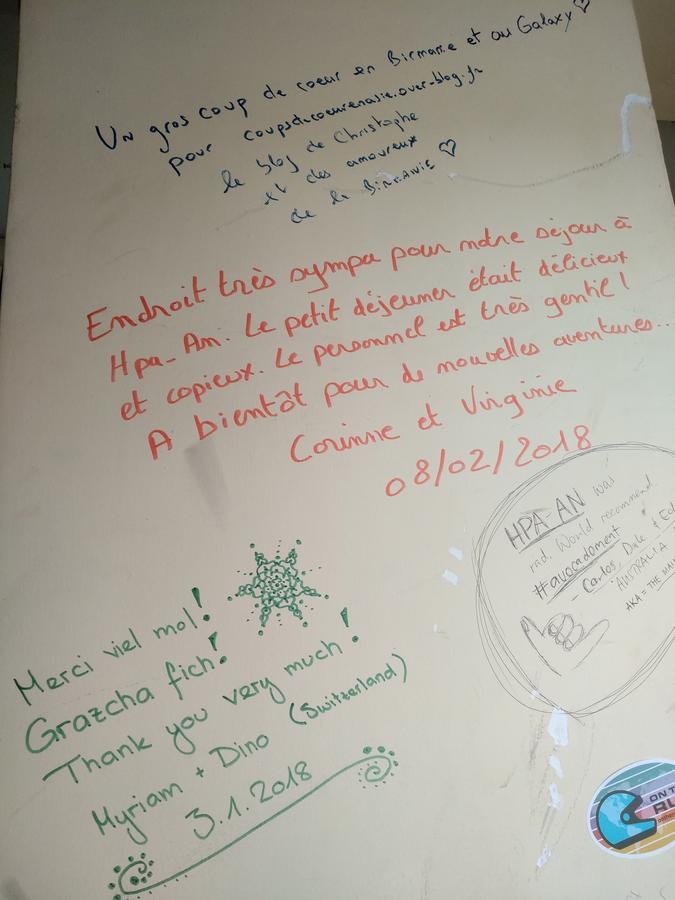 Un gros coup de coeur en Birmanie et au Galaxy ♡
pour coupsdecoeurenasie.over-blog.fr
le blog de Christophe
et des amoureux
de la Birmanie ♡
Endroit très sympa pour notre séjour à
Hpa-An. Le petit déjeuner était délicieux
et copieux. Le personnel est très gentil !
A bientôt pour de nouvelles aventures...
Corinne et Virginie
08/02/2018
HPA-AN was
rad. Would recommend.
#avocadoment
- Carlos, Dale &
AUSTRALIA
AKA = THE
Merci viel mol!
Grazcha fich!
Thank you very much!
Myriam + Dino (Switzerland)
3.1.2018
ON T